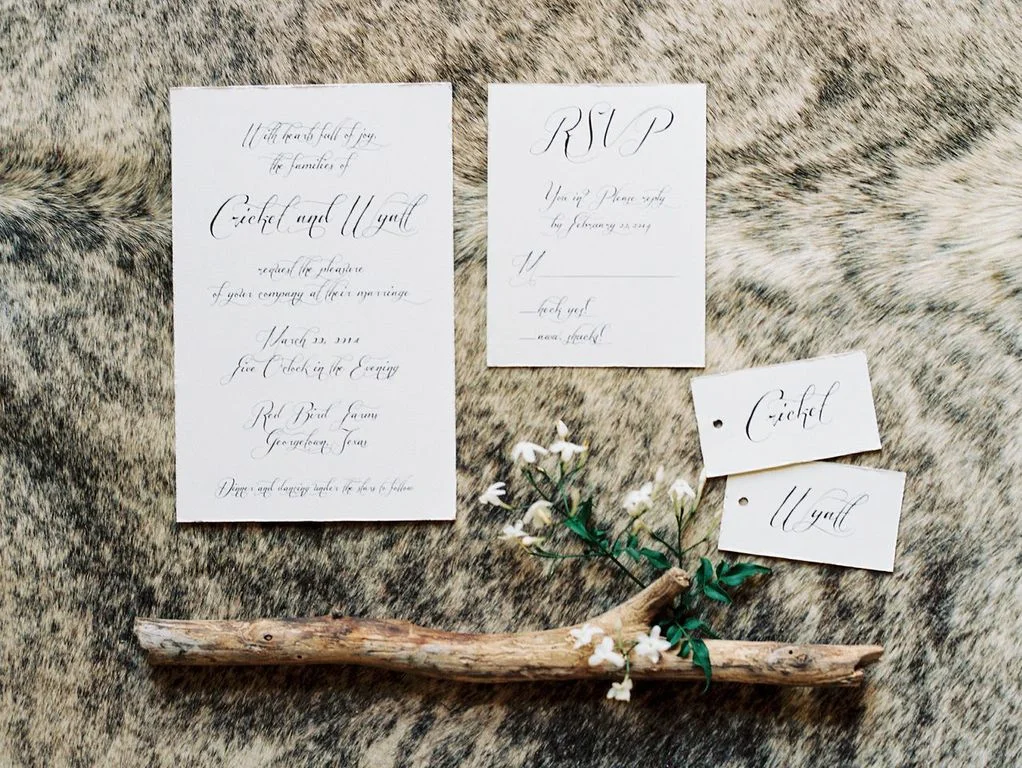 With hearts full of joy,
the families of
Cricket and Wyatt
request the pleasure
of your company at their marriage
March 22, 2014
Five O'clock in the Evening
Red Bird Farms
Georgetown, Texas
Dinner and dancing under the stars to follow
RSVP
You in? Please reply
by February 22, 2014
M
heck yes!
aww, shucks!
Cricket
Wyatt